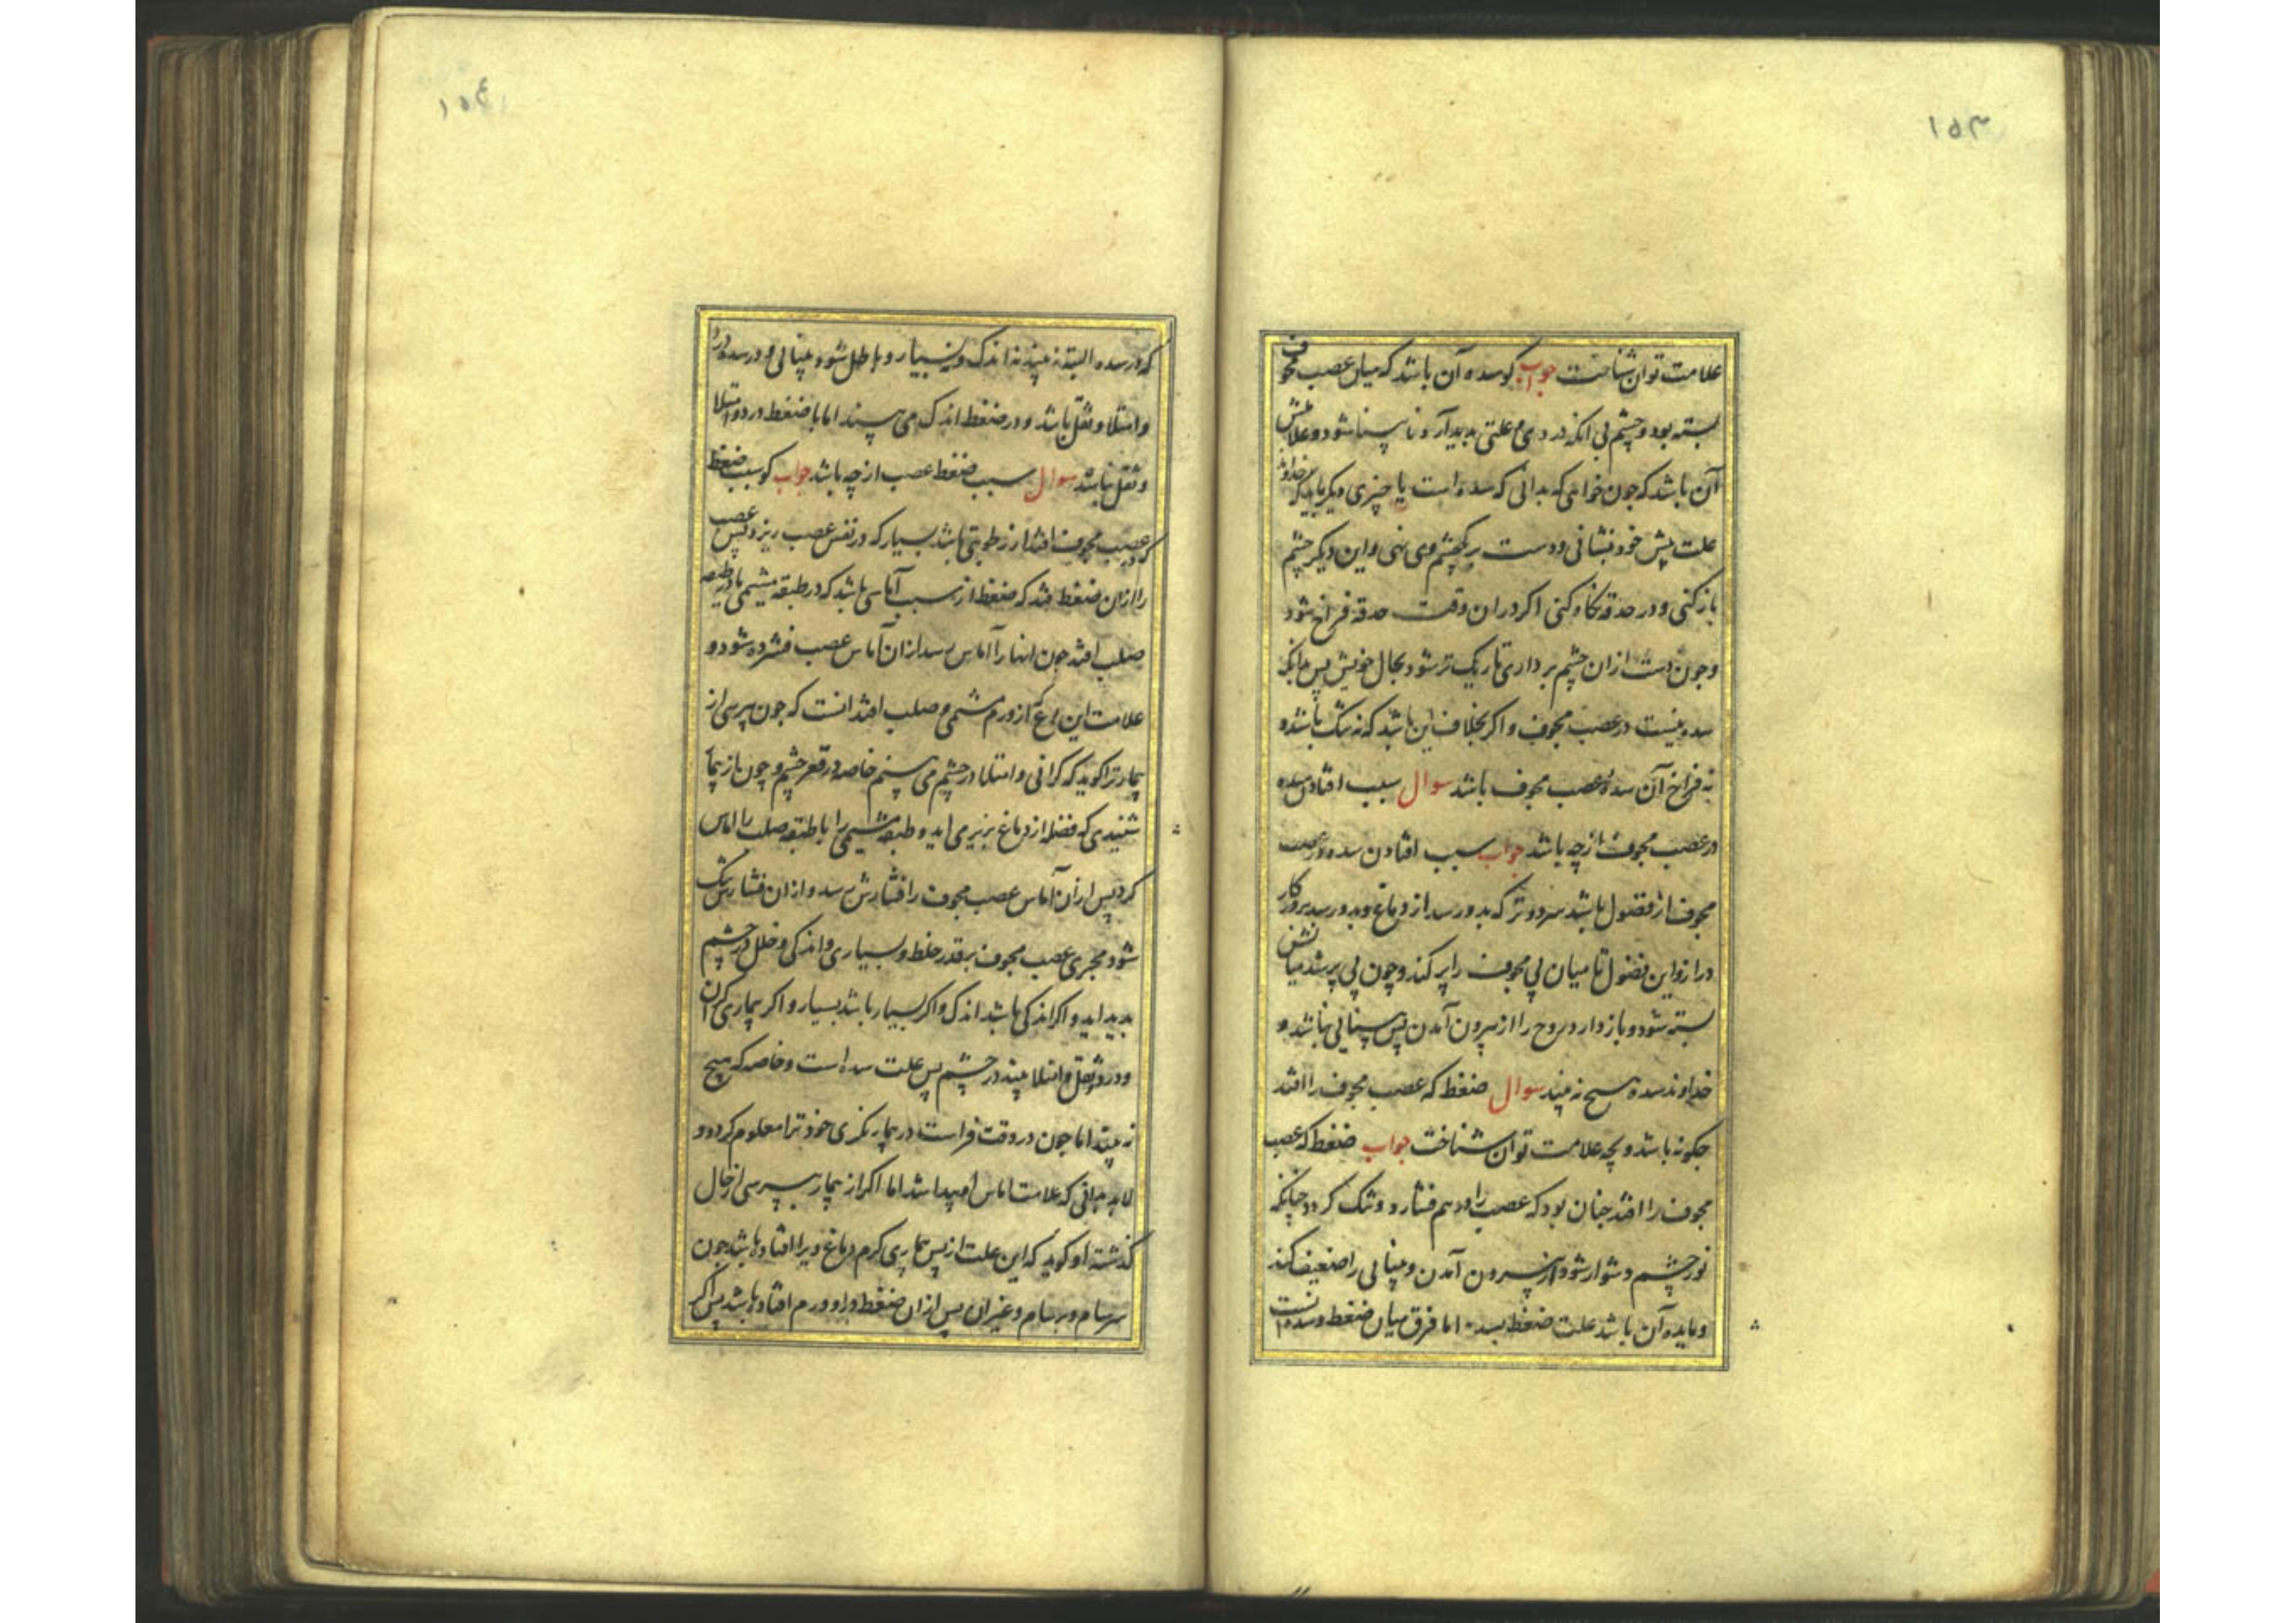 ۱۵۳
علامت توان شناخت جواب کو سده آن باشد که میان عصب مجوف
بسته بود و چشم بی انکه در وی علتی بدید آرد نا بینا شود و علامتش
آن باشد که جون خواهی که بدانی که سده است یا چیزی دیکر باید که خداوند
علت پیش خود بنشانی و دست بر یکچشم وی نهی و این دیکر چشم
باز کنی و در حدقه نکاه کنی اکر دران وقت حدقه فراخ شود
و جون دست ازان چشم برداری تاریک تر شود بحال خویش پس بدانکه
سده نیست در عصب مجوف و اکر بخلاف این باشد که نه تنک باشد و
نه فراخ آن سدهٔ عصب مجوف باشد سوال سبب افتادن سده
در عصب مجوف از چه باشد جواب سبب افتادن سده در عصب
مجوف از فضول باشد سرد و تر که بدو رسد از دماغ و بدو رسد بروزکار
دراز و این فضول تا میان پی مجوف را پر کند و چون پی پر شد میانش
بسته شود و باز دارد روح را از بیرون آمدن پس بینائی نباشد و
خداوند سده هیچ نه بیند سوال ضغط که عصب مجوف را افتد
جکونه باشد و بچه علامت توان شناخت جواب ضغط که عصب
مجوف را افتد جنان بود که عصب را در هم فشارد و تنک کردد چنانکه
نور چشم دشوار شود از بیرون آمدن و بینائی را ضعیف کند
آن باشد علت ضغط اما فرق میان ضغط و سده انست
۱۵۴
که در سده البته نه بیند نه اندک و نه بسیار و باطل شود بینائی و در سده درد
و امتلا و ثقل باشد و در ضغط اندک می بیند اما با ضغط درد و امتلا
و ثقل باشد سوال سبب ضغط عصب از چه باشد جواب کو سبب ضغط
که در عصب مجوف افتد از رطوبتی باشد بسیار که در نفس عصب ریزد پس عصب
را ازان ضغط فتد که ضغط از سبب آماسی باشد که در طبقه مشیمی یا در طبقه
صلب افتد جون اینها را آماس رسد ازان آماس عصب فشرده شود و
علامت این نوع کز ورم مشیمی و صلب افتد انست که جون بپرسی از
بیمار ترا کوید که کرانی و امتلا در چشم می بینم خاصه در قعر چشم و چون از بیمار
شنیدی که فضله از دماغ بزیر می اید و طبقه مشیمی را یا طبقه صلب را اماس
کرد پس ازان آماس عصب مجوف را فشارش رسد و ازان فشارش تنک
شود مجری عصب مجوف بر قدر خلط و بسیاری و اندکی و خلل در چشم
بدید اید و اکر اندکی باشد اندک و اکر بسیار باشد بسیار و اکر بیماری کران
و درد و ثقل و امتلا بیند در چشم پس علت سده است و خاصه که هیچ
نه بیند اما جون در وقت فراست در بیمار نکری خود ترا معلوم کردد و
لابد بدانی که علامت اماس پیدا شد اما اکر از بیمار بپرسی از حال
کذشته او کوید که این علت از پس بیماری کرم دماغ ویرا افتاده باشد جون
سرسام و برسام و غیران پس ازان ضغط و را و ورم افتاده باشد پس اکر